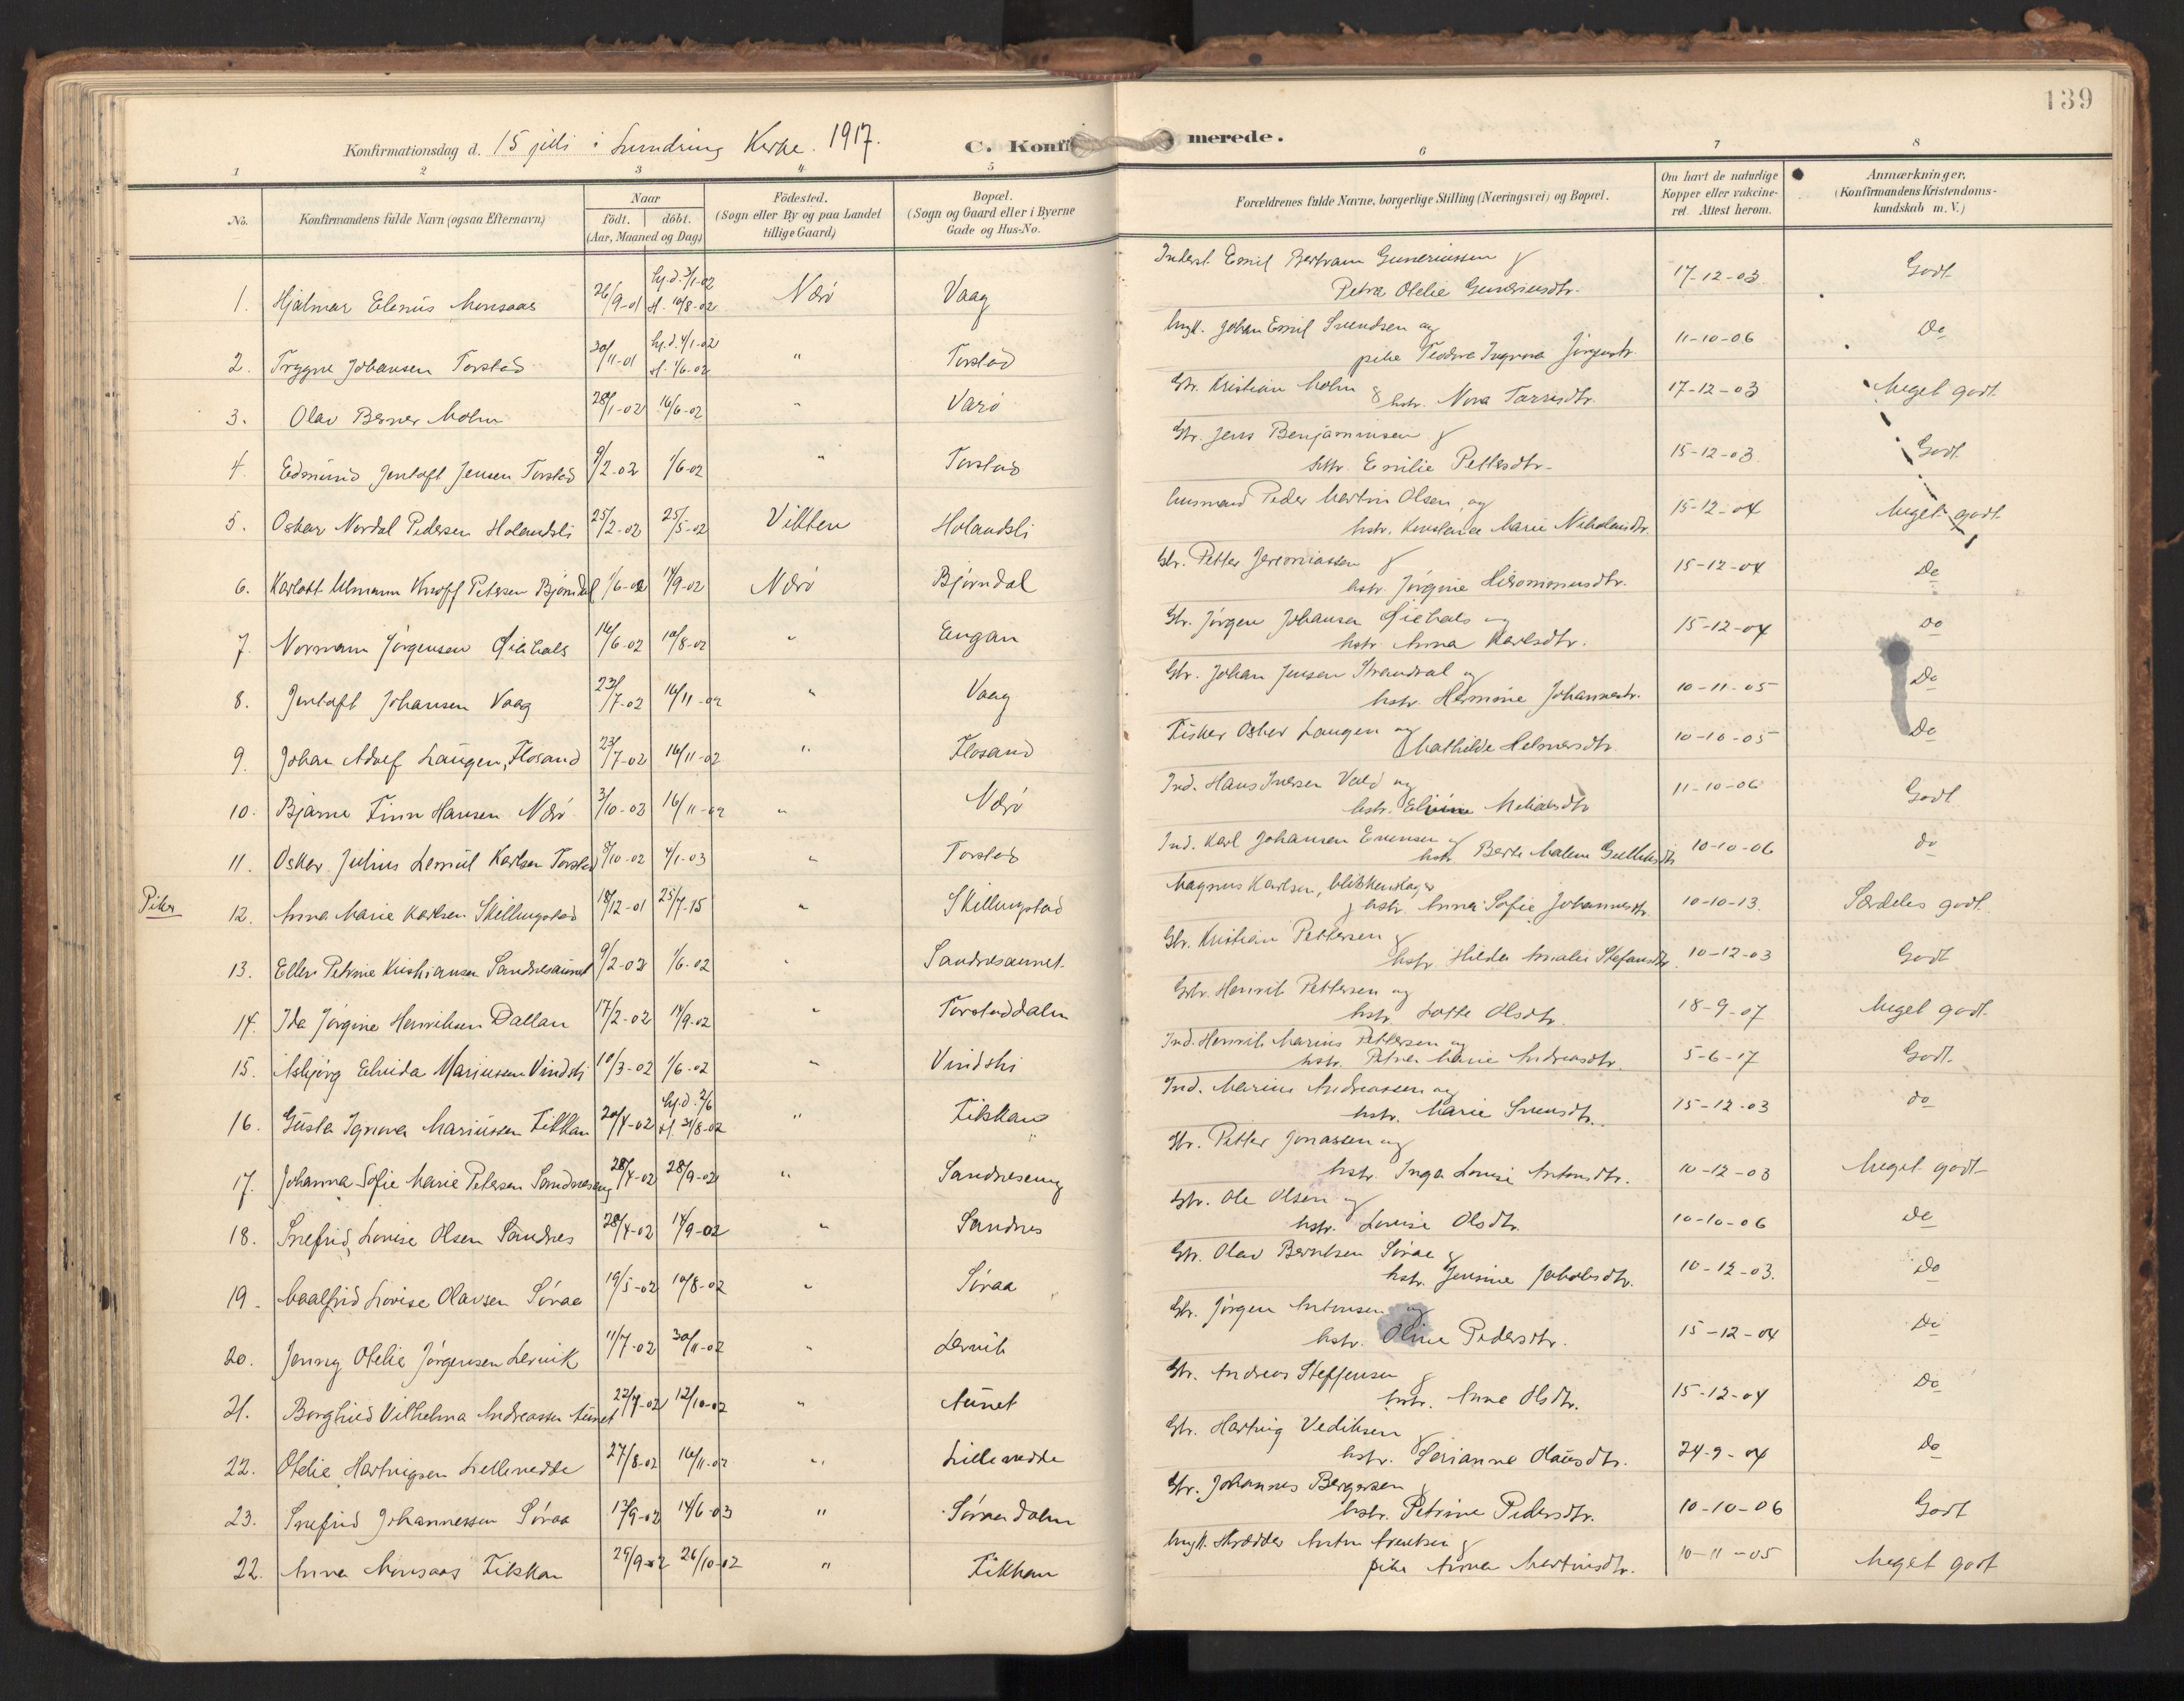 139
Konfirmationsdag d. 15 juli i Lundring Kirke. 1917. C. Konfirmerede.
1 2 3 4 5 6 7 8
No. Konfirmandens fulde Navn (ogsaa Efternavn) Naar födt. döbt. (Aar, Maaned og Dag) Födested. (Sogn eller By og paa Landet tillige Gaard) Bopæl. (Sogn og Gaard eller i Byerne Gade og Hus-No. Forældrenes fulde Navne, borgerlige Stilling (Næringsvei) og Bopæl. Om havt de naturlige Kopper eller vakcineret. Attest herom. Anmærkninger. (Konfirmandens Kristendomskundskab m. V.)
1. Hjalmar Elenius Monsaas 26/9-01 hj.d. 3/1-02 st. 10/8-02 Nærö Vaag Inderst. Emil Bertram Guneriussen & Petra Otelie Guneriusdtr. 17-12-03. Godt
2. Trygve Johansen Torstad 20/11-01 hj.d. 4/1-02 st. 1/6-02 " Torstad Ungk. Johan Emil Svendsen og pike Teodora Ingvora Jörgensdtr. 11-10-06 Do
3. Olav Berner Molm 28/1-02 16/6-02 " Varö Gbr. Kristian Molm & hstr. Nora Tarrisdtr. 17-12-03 Meget godt
4. Edmund Jentoft Jensen Torstad 9/2-02 1/6-02 " Torstad Gbr. Jens Benjaminsen & hstr. Emilie Pettersdtr. 15-12-03. Godt
5. Oskar Nordal Pedersen Holandsli 25/2-02 25/5-02 Vikten Holandsli husmand Peder Martin Olsen og hstr. Konstance Marie Nikolaisdtr. 15-12-04 Meget godt
6. Karlott Ulmann Knoff Petersen Bjørndal 1/6-02 14/9-02 Nærö Bjørndal Gbr. Petter Jeremiassen & hstr. Jörgine Hieronimusdtr. 15-12-04 Do
7. Normann Jörgensen Giehals 16/6-02 10/8-02 " Engan Gbr. Jörgen Johansen Giehals og hstr. Anna Karlsdtr. 15-12-04 Do
8. Jentoft Johansen Vaag 23/7-02 16/11-02 " Vaag Gbr. Johan Jensen Strandval og hstr. Hermine Johannesdtr. 10-11-05 Do
9. Johan Adolf Laugen, Flosand 23/7-02 16/11-02 " Flosand Fisker Oskar Laugen og Mathilde Helmersdtr. 10-10-05 Do
10. Bjarne Finn Hansen Nærö 3/10-02 16/11-02 " Nærö Ind. Hans Iversen Vold og hstr. Elvine Meliasdtr 11-10-06 Godt
11. Oskar Julius Lemuel Karlsen Torstad 8/10-02 4/1-03 " Torstad Ind. Karl Johansen Evensen & hstr. Berte Malene Gullaksdtr 10-10-06 do
Piker
12. Anna Marie Karlsen Skillingstad 18/12-01 25/7-15 " Skillingstad Magnus Karlsen, blikkenslager & hstr. Anna Sofie Johannesdtr. 10-10-13. Særdeles godt
13. Ellen Petrine Kristiansen Sandnesaunet 9/2-02 1/6-02 " Sandnesaunet Gbr. Kristian Pettersen & hstr. Hilda Amalie Stefansdtr. 10-12-03 Godt
14. Ida Jörgine Henriksen Dallan 17/2-02 14/9-02 " Torstaddalen Gbr. Henrik Pettersen og hstr. Lotte Olsdtr. 18-9-07 Meget godt
15. Asbjörg Elvida Mariusen Vindsli 10/3-02 1/6-02 " Vindsli Ind. Henrik Marius Pettersen og hstr. Petra Marie Andreasdtr. 5-6-17 Godt.
16. Gusta Ignora Mariussen Fikkan 20/4-02 hj.d. 2/6 st. 31/8-02 " Fikkan Ind. Marius Andreassen og hstr. Marie Svensdtr. 15-12-03 do
17. Johanna Sofie Marie Petersen Sandneseng 28/4-02 28/9-02 " Sandneseng Gbr. Petter Jonassen og hstr. Inga Lovise Antonsdtr. 10-12-03 Meget godt
18. Snefrid Lovise Olsen Sandnes 28/4-02 14/9-02 " Sandnes Gbr. Ole Olsen og hstr. Lovise Olsdtr. 10-10-06 do
19. Maalfrid Lovise Olavsen Söraa 19/5-02 10/8-02 " Söraa Gbr. Olav Berntsen Söraa & hstr. Jensine Jakobsdtr. 10-12-03. Do
20. Jenny Otelie Jörgensen Lervik 11/7-02 30/11-02 " Lervik Gbr. Jörgen Antonsen og hstr. Oline Pedersdtr. 15-12-04 Do
21. Borghild Vilhelma Andreassen Aunet 22/7-02 12/10-02 " Aunet Gbr. Andreas Steffensen & hstr. Anna Olsdtr. 15-12-04 Do
22. Otelie Hartvigsen Lillevedde 27/8-02 16/11-02 " Lillevedde Gbr. Hartvig Vediksen & hstr. Serianna Olausdtr. 24-9-04 Do
23. Snefrid Johannessen Söraa 13/9-02 14/6-03 " Söraadalen Gbr. Johannes Bergersen & hstr. Petrine Pedersdtr. 10-10-06 Godt
22. Anna Monsaas Fikkan 29/9-02 26/10-02 " Fikkan Ungk. Skrædder Anton Arentsen & pike Anna Martinsdtr. 10-11-05 Meget godt